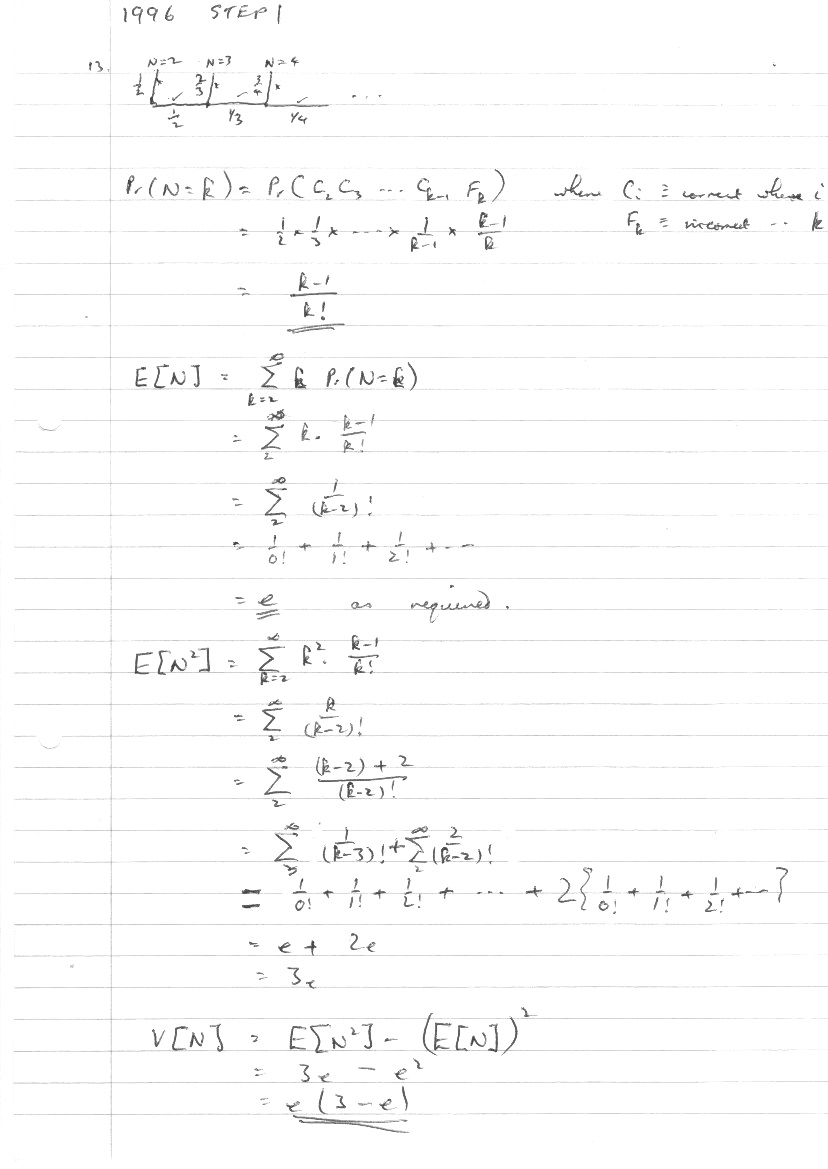 1996 STEP 1
13. N=2 N=3 N=4
1/2 × ✓ 2/3 × ✓ 3/4 × ✓ ...
1/2 1/3 1/4
Pr(N=k) = Pr(C₂C₃ ··· Cₖ₋₁ Fₖ) where Cᵢ ≡ correct where i
= 1/2 × 1/3 × ---- × 1/(k-1) × (k-1)/k Fₖ ≡ incorrect -- k
= (k-1)/k!
E[N] = ∑_{k=2}^∞ k Pr(N=k)
= ∑_2^∞ k · (k-1)/k!
= ∑_2^∞ 1/(k-2)!
= 1/0! + 1/1! + 1/2! + ---
= e as required.
E[N²] = ∑_{k=2}^∞ k² · (k-1)/k!
= ∑_2^∞ k/(k-2)!
= ∑_2^∞ ((k-2) + 2)/(k-2)!
= ∑_3^∞ 1/(k-3)! + ∑_2^∞ 2/(k-2)!
= 1/0! + 1/1! + 1/2! + ··· + 2{1/0! + 1/1! + 1/2! + ---}
= e + 2e
= 3e
V[N] = E[N²] - (E[N])²
= 3e - e²
= e(3-e)